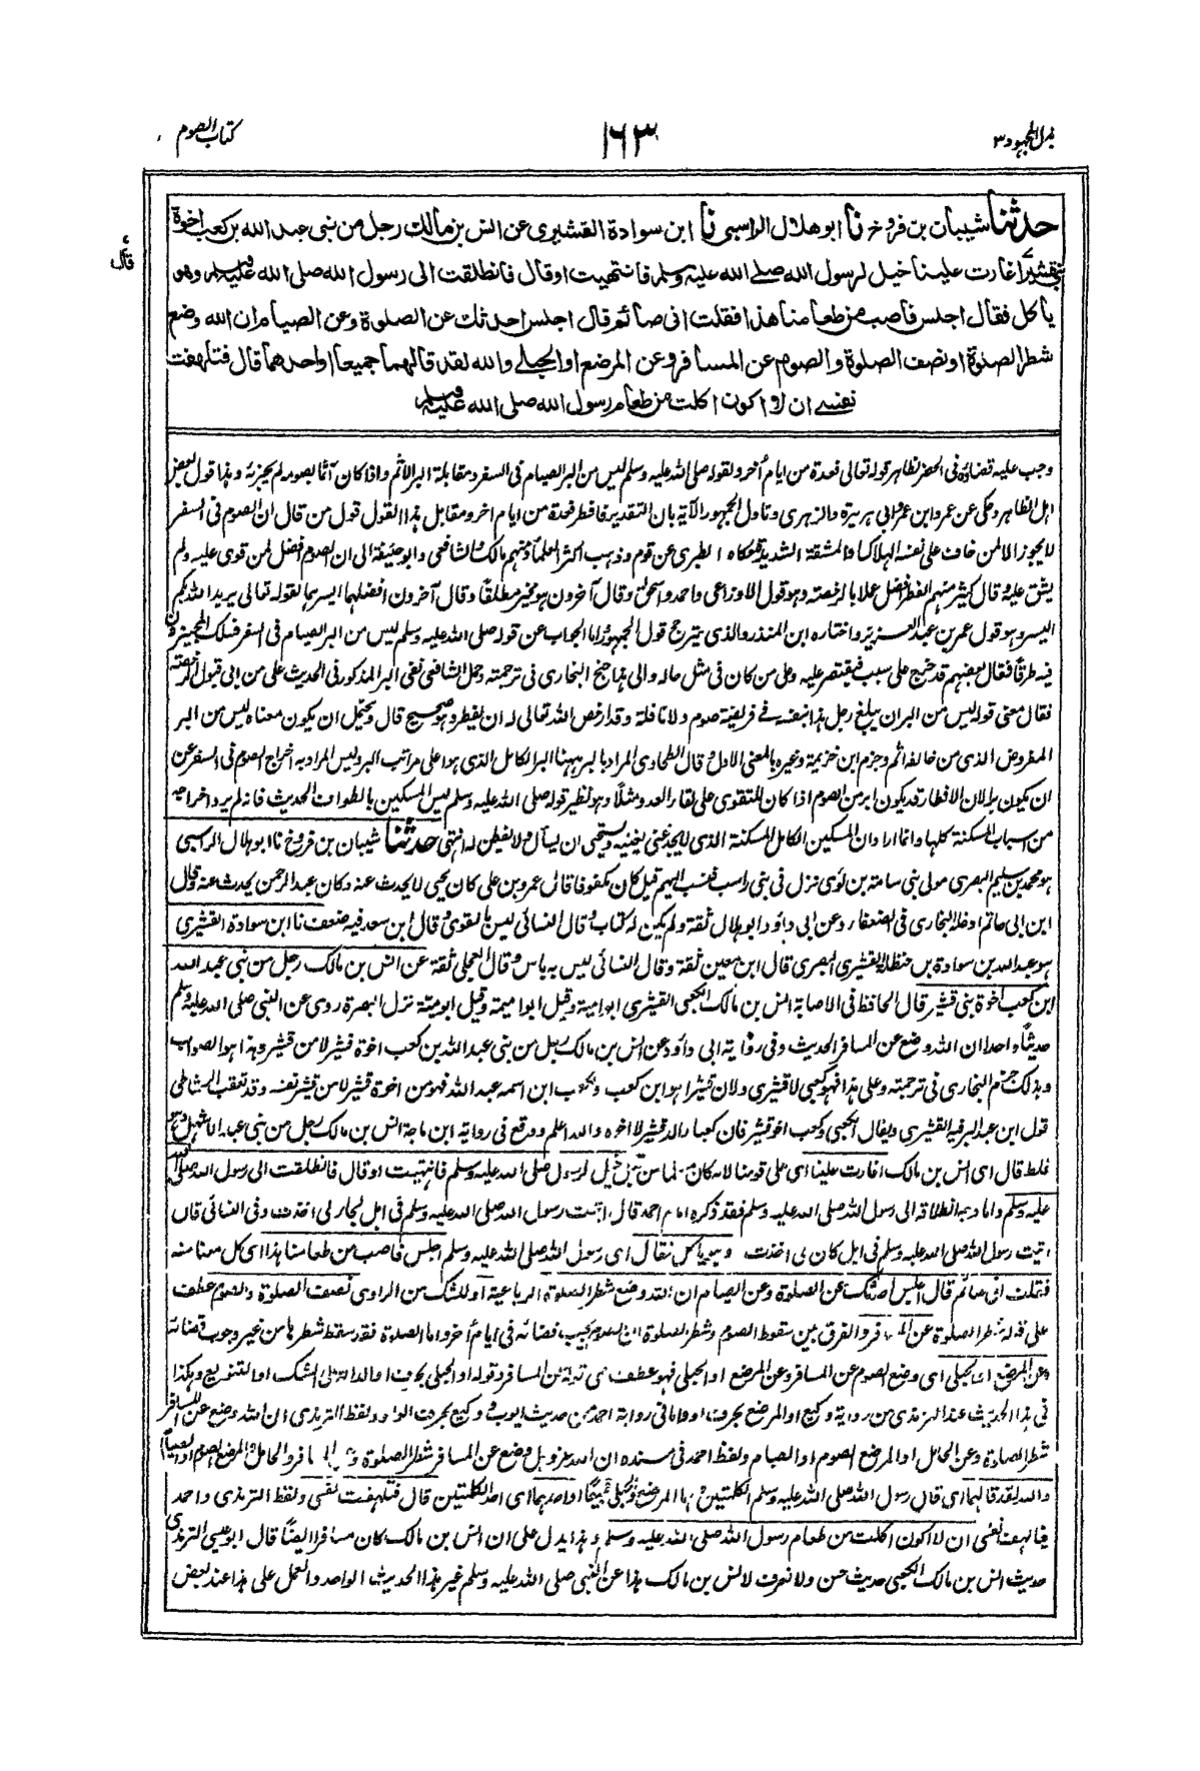 بذل المجهود ٣
١٦٣
كتاب الصوم
حدثنا شيبان بن فروخ نا ابو هلال الراسبي نا ابن سوادة القشيري عن انس بن مالك رجل من بني عبد الله بن كعب اخوة
بني قشير اغارت علينا خيل لرسول الله صلى الله عليه وسلم فانتهيت او قال فانطلقت الى رسول الله صلى الله عليه وسلم وهو
قال
ياكل فقال اجلس فاصب من طعامنا هذا فقلت اني صائم قال اجلس احدثك عن الصلوة وعن الصيام ان الله وضع
شطر الصلوة او نصف الصلوة والصوم عن المسافر وعن المرضع او الحبلى والله لقد قالهما جميعا او احدهما قال فتلهفت
نفسي ان لا اكون اكلت من طعام رسول الله صلى الله عليه وسلم
وجب عليه قضاؤه في الحضر لظاهر قوله تعالى فعدة من ايام أخر ولقوله صلى الله عليه وسلم ليس من البر الصيام في السفر ومقابلة البر الاثم واذا كان آثما بصومه لم يجزئه وهذا قول بعض
اهل الظاهر وحكي عن عمر وابن عمر وابي هريرة والزهري وتاول الجمهور الآية بان التقدير فافطر فعدة من ايام اخر ومقابل هذا القول قول من قال ان الصوم في السفر
لا يجوز الا لمن خاف على نفسه الهلاك او المشقة الشديدة حكاه الطبري عن قوم وذهب اكثر العلماء ومنهم مالك والشافعي وابو حنيفة الى ان الصوم افضل لمن قوي عليه ولم
يشق عليه وقال كثير منهم الفطر افضل عملا بالرخصة وهو قول الاوزاعي واحمد واسحق وقال آخرون هو مخير مطلقا وقال آخرون افضلهما ايسرهما لقوله تعالى يريد الله بكم
اليسر وهو قول عمر بن عبد العزيز واختاره ابن المنذر والذي يترجح قول الجمهور واما الجواب عن قوله صلى الله عليه وسلم ليس من البر الصيام في السفر فسلك المجيزون
فيه طرقا فقال بعضهم قد خرج على سبب فيقتصر عليه وعلى من كان في مثل حاله والى هذا جنح البخاري في ترجمته وحمل الشافعي نفي البر المذكور في الحديث على من ابى قبول الرخصة
فقال معنى قوله ليس من البر ان يبلغ رجل هذا بنفسه في فريضة صوم ولا نافلة وقد ارخص الله تعالى له ان يفطر وهو صحيح قال ويحتمل ان يكون معناه ليس من البر
المفروض الذي من خالفه اثم وجزم ابن خزيمة وغيره بالمعنى الاول وقال الطحاوي المراد بالبر ههنا البر الكامل الذي هو اعلى مراتب البر وليس المراد به اخراج الصوم في السفر عن
ان يكون برا لان الافطار قد يكون ابر من الصوم اذا كان للتقوي على لقاء العدو مثلا وهو نظير قوله صلى الله عليه وسلم ليس المسكين بالطواف الحديث فانه لم يرد اخراجه
من اسباب المسكنة كلها وانما اراد ان المسكين الكامل المسكنة الذي لا يجد غنى يغنيه ويستحيي ان يسأل ولا يفطن له انتهى حدثنا شيبان بن فروخ نا ابو هلال الراسبي
هو محمد بن سليم البصري مولى بني سامة بن لؤي نزل في بني راسب فنسب اليهم قيل كان مكفوفا قال عمرو بن علي كان يحيى لا يحدث عنه وكان عبد الرحمن يحدث عنه وقال
ابن ابي حاتم ادخله البخاري في الضعفاء وعن ابي داؤد ابو هلال ثقة ولم يكن له كتاب وقال النسائي ليس بالقوي وقال ابن سعد فيه ضعف نا ابن سوادة القشيري
هو عبد الله بن سوادة بن حنظلة القشيري البصري قال ابن معين ثقة وقال النسائي ليس به باس وقال العجلي ثقة عن انس بن مالك رجل من بني عبد الله
ابن كعب اخوة بني قشير قال الحافظ في الاصابة انس بن مالك الكعبي القشيري ابو امية وقيل ابو اميمة وقيل ابو مية نزل البصرة روى عن النبي صلى الله عليه وسلم
حديثا واحدا ان الله وضع عن المسافر الحديث وفي رواية ابي داؤد عن انس بن مالك رجل من بني عبد الله بن كعب اخوة قشير لا من قشير وهذا هو الصواب
وبذلك جزم البخاري في ترجمته وعلى هذا فهو كعبي لا قشيري ولان قشيرا هو ابن كعب ولكعب ابن اسمه عبد الله فهو من اخوة قشير لا من قشير نفسه وقد تعقب الرشاطي
قول ابن عبد البر فيه القشيري ويقال الكعبي وكعب اخو قشير فان كعبا والد قشير لا اخوه والله اعلم ووقع في رواية ابن ماجة انس بن مالك رجل من بني عبد الاشهل وهو
غلط قال اي انس بن مالك اغارت علينا اي على قومنا لانه كان مسلما من قبل خيل لرسول صلى الله عليه وسلم فانتهيت او قال فانطلقت الى رسول الله صلى الله
عليه وسلم واما وجه انطلاقه الى رسول الله صلى الله عليه وسلم فقد ذكره امام احمد قال اتيت رسول الله صلى الله عليه وسلم في ابل لجار لي اخذت وفي النسائي قال
اتيت رسول الله صلى الله عليه وسلم في ابل كان لي اخذت وهو ياكل فقال اي رسول الله صلى الله عليه وسلم اجلس فاصب من طعامنا هذا اي كل معنا منه
فقلت اني صائم قال اجلس احدثك عن الصلوة وعن الصيام ان الله وضع شطر الصلوة الرباعية او للشك من الراوي نصف الصلوة والصوم عطف
على قوله شطر الصلوة عن المسافر والفرق بين سقوط الصوم وشطر الصلوة ان الصوم يجب قضائه في ايام أخر واما الصلوة فقد سقط شطرها من غير وجوب قضائه
وعن المرضع او الحبلى اي وضع الصوم عن المسافر وعن المرضع او الحبلى فهو عطف على قوله عن المسافر وقوله او الحبلى بحرف او الدالة على الشك او للتنويع وهكذا
في هذا الحديث عند الترمذي من رواية وكيع او المرضع بحرف او واما في رواية احمد من حديث ايوب ووكيع بحرف الواو ولفظ الترمذي ان الله وضع عن المسافر
شطر الصلوة وعن الحامل او المرضع الصوم او الصيام ولفظ احمد في مسنده ان الله عز وجل وضع عن المسافر شطر الصلوة وعن المسافر والحامل والمرضع الصوم او الصيام
والله لقد قالهما اي قال رسول الله صلى الله عليه وسلم الكلمتين وهما المرضع والحبلى جميعا او احدهما اي احد الكلمتين قال فتلهفت نفسي ولفظ الترمذي واحمد
فيا لهف نفسي ان لا اكون اكلت من طعام رسول الله صلى الله عليه وسلم وهذا يدل على ان انس بن مالك كان مسافرا ايضا قال ابو عيسى الترمذي
حديث انس بن مالك الكعبي حديث حسن ولا نعرف لانس بن مالك هذا عن النبي صلى الله عليه وسلم غير هذا الحديث الواحد والعمل على هذا عند بعض